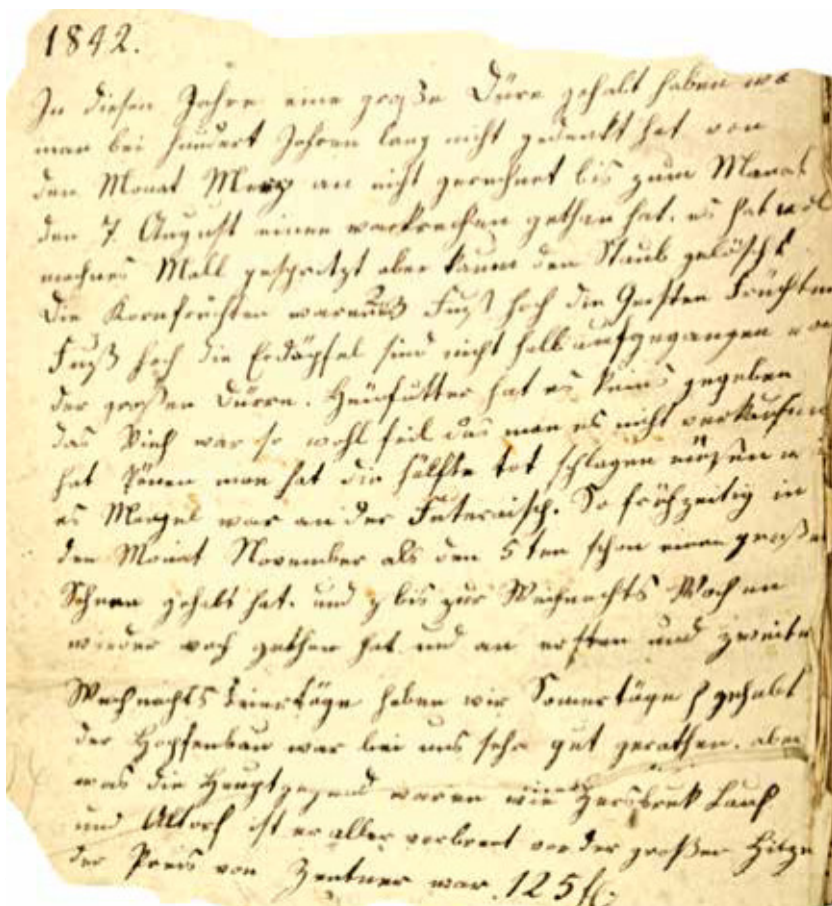 1842.
In diesen Jahre eine große Düre gehabt haben wo
man bei hundert Jahren lang nicht gedenkt hat von
den Monat Merz an nicht gerechnet bis zum Monat
den 7 August einen gethan hat. es hat
Mall gespritzt aber kaum den Staub gelöscht
Die Kornfrüchten waren Fuß hoch die Gersten Früchten
Fuß hoch die Erdäpfel sind nicht halb aufgegangen von
der großen Dürre. Heufutter hat es keins gegeben
das Vieh war so wohl feil das man es nicht verkaufen
hat könen man hat die hälfte tot schlagen müsen
es Mangel war an der Futer. So frühzeitig in
den Monat November als den 5ten schon einen großen
Schnee gehabt hat. und bis zur Weihnachts Wochen
wieder gethan hat und an ersten und zweite
Weihnachts Feiertäge haben wir Somertäge gehabt
der Hopfenbau war bei uns sehr gut gerathen. aber
was die Hauptgegend waren wie Hersbruk Lauf
und Altorf ist er aller verbrent vor der großer Hitze
der Preis von Zentner war 125 fl.